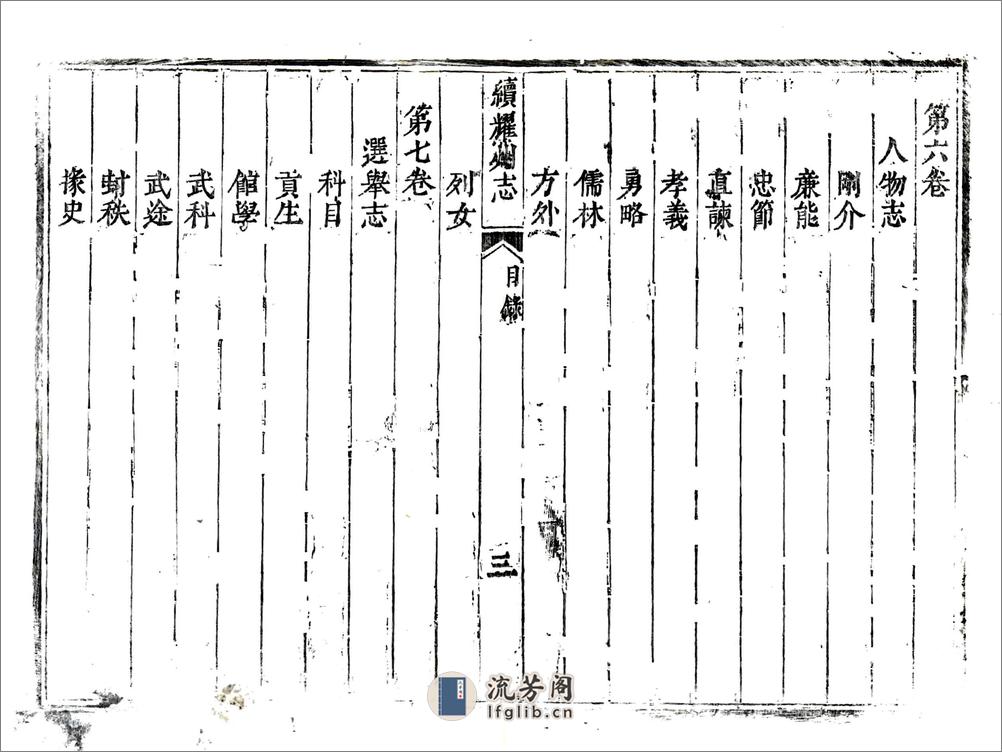 第六卷
人物志
剛介
廉能
忠節
直諫
孝義
勇略
儒林
方外
續耀州志
目錄
三
列女
第七卷
選舉志
科目
貢生
館學
武科
武途
封秩
掾史
流芳阁
lfglib.cn